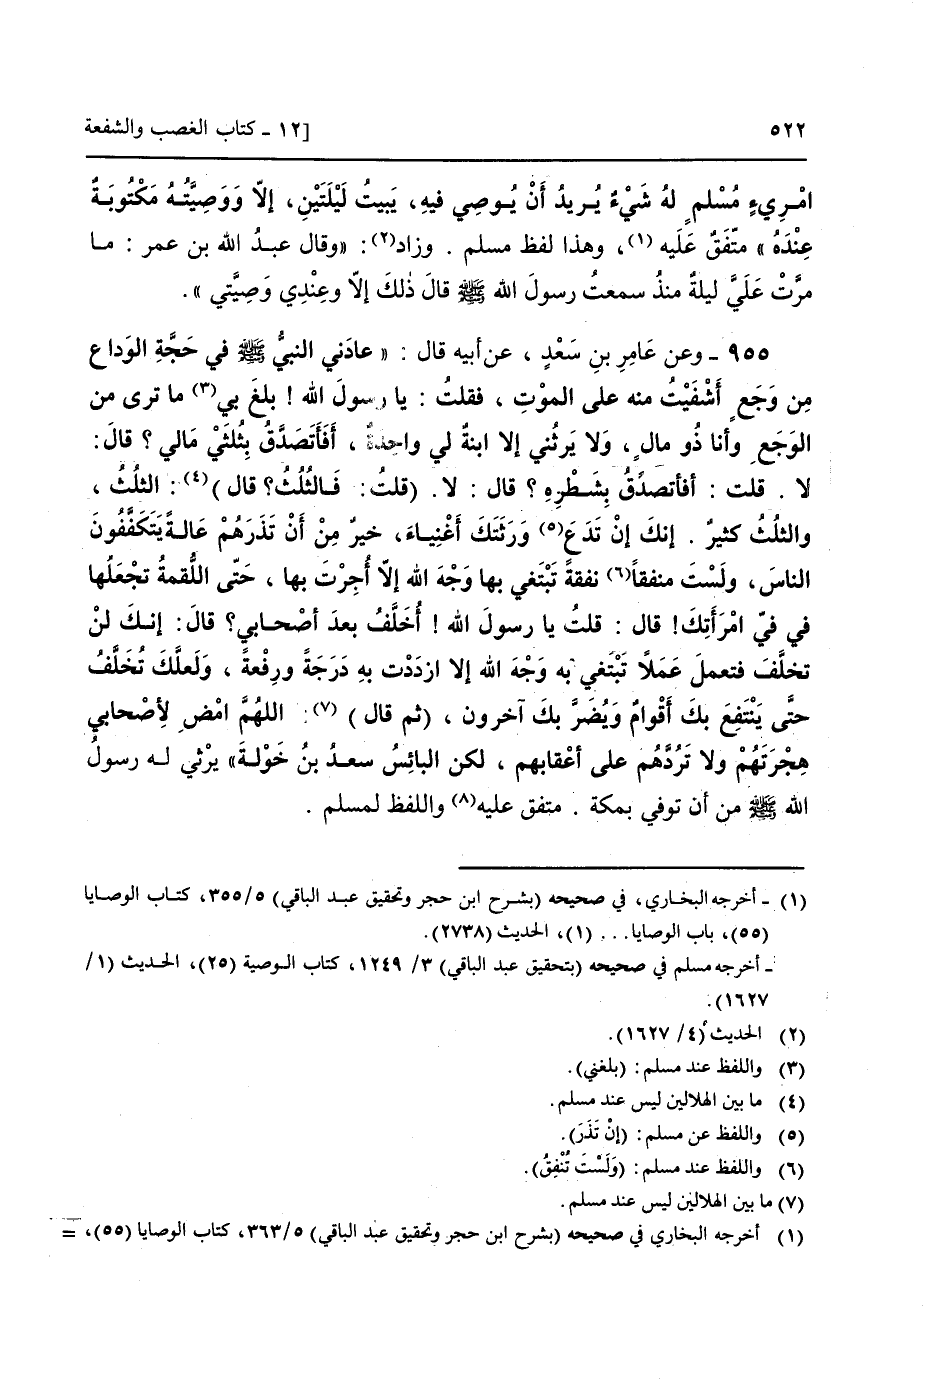 ٥٢٢ [١٢ ـ كتاب الغصب والشفعة
امْرِيءٍ مُسْلمٍ لهُ شَيْءٌ يُريدُ أَنْ يُوصي فيهِ، يَبيتُ لَيْلَتَيْنِ، إلاّ وَوَصِيَّتُهُ مَكْتُوبَةٌ
عِنْدَهُ» متّفَقٌ عَلَيه (١)، وهذا لفظ مسلم . وزاد(٢): «وقال عبدُ الله بن عمر : ما
مرَّتْ عَلَيَّ ليلةٌ منذُ سمعتُ رسولَ الله ﷺ قالَ ذٰلكَ إلاّ وعِنْدِي وَصِيَّتي ».
٩٥٥ ـ وعن عَامِرِ بنِ سَعْدٍ ، عن أبيه قال : « عادَني النبيُّ ﷺ في حَجَّةِ الوَداع
مِن وَجَعٍ أَشْفَيْتُ منه على الموْتِ ، فقلتُ : يا رسولَ الله ! بلغَ بي(٣) ما ترى من
الوَجَعِ وأنا ذُو مالٍ ، وَلا يَرثُني إلا ابنةٌ لي واحدةٌ ، أَفَأَتَصَدَّقُ بِثُلثَيْ مَالي ؟ قالَ :
لا . قلت : أفأتصدَّقُ بِشَطْرِهِ ؟ قال : لا . (قلتُ: فَالثُلُثُ؟ قال )(٤): الثلُثُ ،
والثلُثُ كثيرٌ . إنكَ إنْ تَدَعَ(٥) وَرَثَتَكَ أَغْنِياءَ، خيرٌ مِنْ أَنْ تَذَرَهُمْ عَالةً يَتَكَفَّفُونَ
الناسَ ، ولَسْتَ منفقاً(٦) نفقةً تَبْتَغي بها وَجْهَ الله إلاّ أُجِرْتَ بها ، حَتّى اللُّقمةُ تجْعَلُها
في فيّ امْرَأَتِكَ! قال : قلتُ يا رسولَ الله ! أُخَلَّفُ بعدَ أصْحابي؟ قالَ: إنكَ لنْ
تخلَّفَ فتعملَ عَمَلاً تَبْتَغي به وَجْهَ الله إلا ازدَدْت بهِ دَرَجَةً ورِفْعةً ، وَلَعلَّكَ تُخَلَّفُ
حتَّى يَنْتَفِعَ بكَ أَقْوامٌ وَيُضَرَّ بكَ آخرون ، (ثم قال ) (٧): اللهُمَّ امْضِ لِأصْحابي
هِجْرَتَهُمْ ولا تَرُدَّهُم على أعْقابهم ، لكن البائِسُ سعدُ بنُ خَوْلةَ» يرْثي له رسولُ
الله ﷺ من أن توفي بمكة . متفق عليه(٨) واللفظ لمسلم .
(١) ـ أخرجه البخاري، في صحيحه (بشرح ابن حجر وتحقيق عبد الباقي) ٣٥٥/٥، كتاب الوصايا
(٥٥)، باب الوصايا... (١)، الحديث (٢٧٣٨).
ـ أخرجه مسلم في صحيحه (بتحقيق عبد الباقي) ٣/ ١٢٤٩، كتاب الوصية (٢٥)، الحديث (١/
١٦٢٧).
(٢) الحديث (٤/ ١٦٢٧).
(٣) واللفظ عند مسلم: (بلغني).
(٤) ما بين الهلالين ليس عند مسلم.
(٥) واللفظ عن مسلم: (إنْ تَذَرَ).
(٦) واللفظ عند مسلم: (وَلَسْتَ تُنْفِقُ).
(٧) ما بين الهلالين ليس عند مسلم.
(١) أخرجه البخاري في صحيحه (بشرح ابن حجر وتحقيق عبد الباقي) ٣٦٣/٥، كتاب الوصايا (٥٥)، =